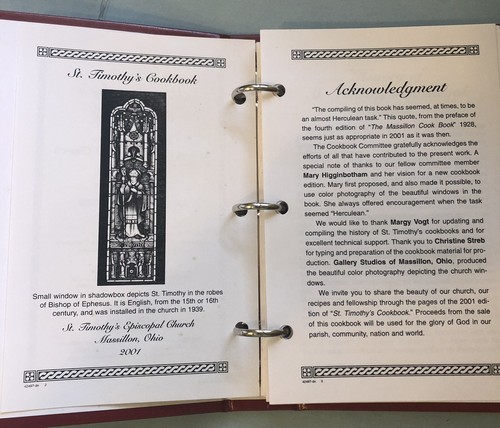 St. Timothy's Cookbook
Small window in shadowbox depicts St. Timothy in the robes
of Bishop of Ephesus. It is English, from the 15th or 16th
century, and was installed in the church in 1939.
St. Timothy's Episcopal Church
Massillon, Ohio
2001
Acknowledgment
"The compiling of this book has seemed, at times, to be
an almost Herculean task." This quote, from the preface of
the fourth edition of "The Massillon Cook Book" 1928,
seems just as appropriate in 2001 as it was then.
The Cookbook Committee gratefully acknowledges the
efforts of all that have contributed to the present work. A
special note of thanks to our fellow committee member
Mary Higginbotham and her vision for a new cookbook
edition. Mary first proposed, and also made it possible, to
use color photography of the beautiful windows in the
book. She always offered encouragement when the task
seemed "Herculean."
We would like to thank Margy Vogt for updating and
compiling the history of St. Timothy's cookbooks and for
excellent technical support. Thank you to Christine Streb
for typing and preparation of the cookbook material for pro-
duction. Gallery Studios of Massillon, Ohio, produced
the beautiful color photography depicting the church win-
dows.
We invite you to share the beauty of our church, our
recipes and fellowship through the pages of the 2001 edi-
tion of "St. Timothy's Cookbook." Proceeds from the sale
of this cookbook will be used for the glory of God in our
parish, community, nation and world.